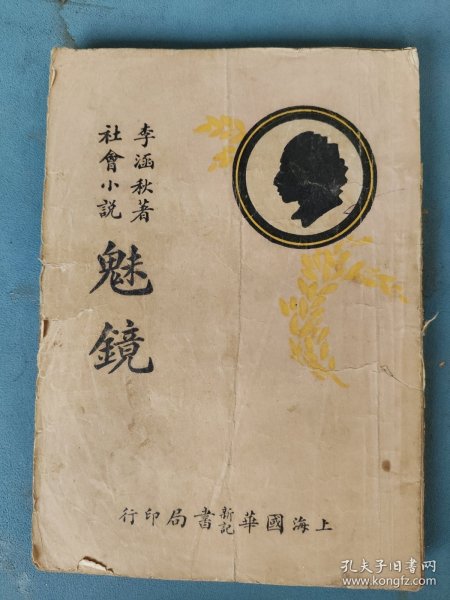 李涵秋著
社會小說
魅鏡
上海國華新記書局印行
孔夫子旧书网
www.kongfz.com